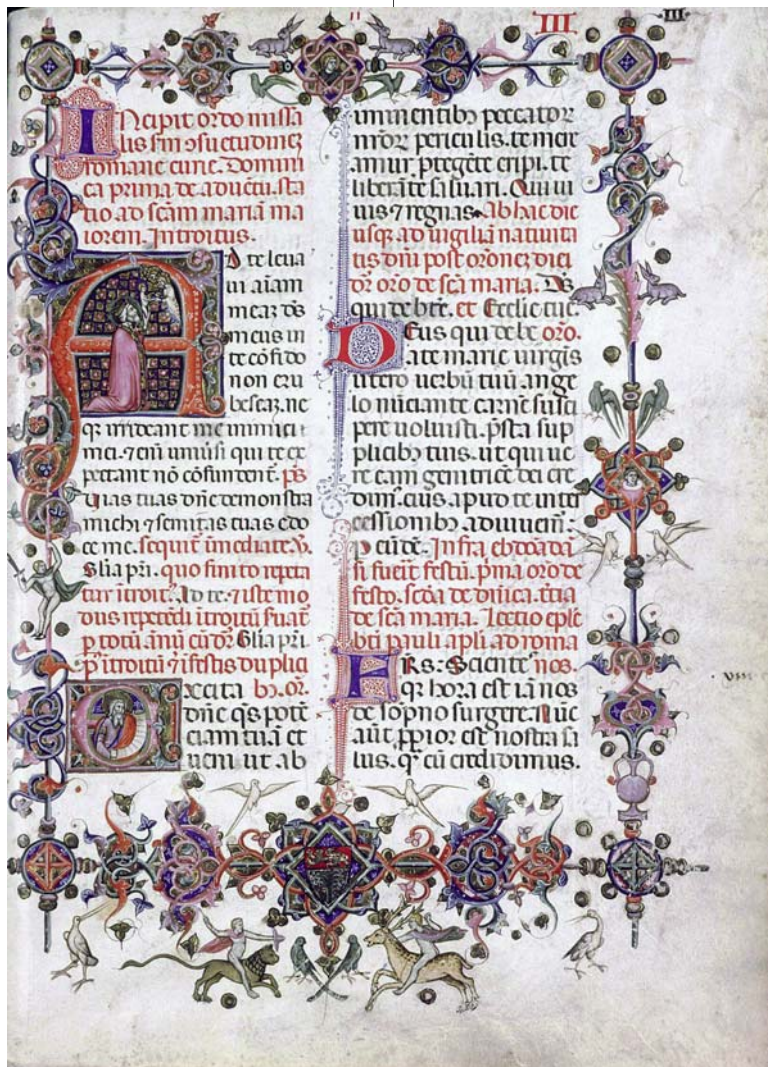 III
III
INcipit ordo missa
lis scḋm ↄsuetudinez
romane curie. Domini
ca prima de aduētu. sta
tio ad scām mariā ma
iorem. Introitus.
Ad te leua
ui aīam
meaz ds̄
meus in
te cōfido
non eru
bescaz. ne
qꝫ irrideant me inimici
mei. ⁊ eīm uniūsi qui te ex
pectant nō cōfundent̄. p̄s
Uias tuas dn̄e demonstra
michi ⁊ semitas tuas edo
ce me. sequit̄ īmediate. V̄.
Gl̄ia pr̄i. quo finito repeta
tur ītroit̄. Ad te. ⁊ iste mo
dus repetēdi ītroitū ẜuat̄
p totū ānū cū dr̄ Gl̄ia pr̄i.
p̄ ītroitū ⁊ ī festis duplici
Excita bꝫ. or̄.
dn̄e q̄s potē
ciam tuā et
ueni ut ab
imminentibꝫ peccator
nr̄oꝝ periculis. te mere
amur ꝓtegēte eripi. te
liberāte saluari. Qui ui
uis ⁊ regnas. Ab hac die
usqꝫ ad uigiliā natiuita
tis dn̄i post or̄onez diei
dr̄ or̄o de scā maria. Ds̄
qui de btē. et Ecclie tue.
Deus qui de be or̄o.
ate marie uirgīs
utero uerbū tuū ange
lo nūciante carnē susci
pere uoluisti. p̄sta sup
plicibꝫ tuis. ut qui ue
re eam genitricē dei cre
dimꝰ. eius apud te inter
cessionibꝫ adiuuem̄.
p eūdē. Infra ebdoādā
si fuerit festū. p̄ma or̄o de
festo. scd̄a de dn̄ica. t̄cia
de scā maria. Lectio epl̄e
bti pauli apl̄i ad roma
FRs: Scientes nos.
qꝫ hora est iā nos
de sopno surgere. Nūc
aūt ꝓprior est nostra sa
lus. qꝫ cū credidimus.